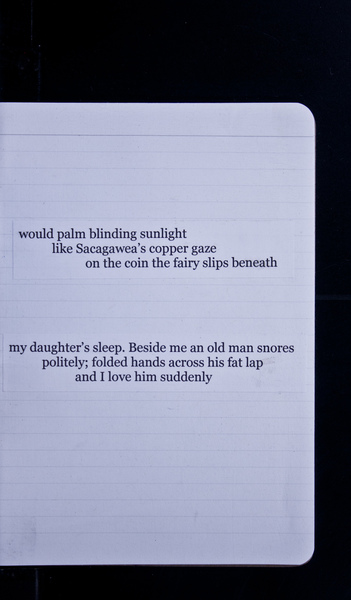 would palm blinding sunlight
like Sacagawea's copper gaze
on the coin the fairy slips beneath
my daughter's sleep. Beside me an old man snores
politely; folded hands across his fat lap
and I love him suddenly